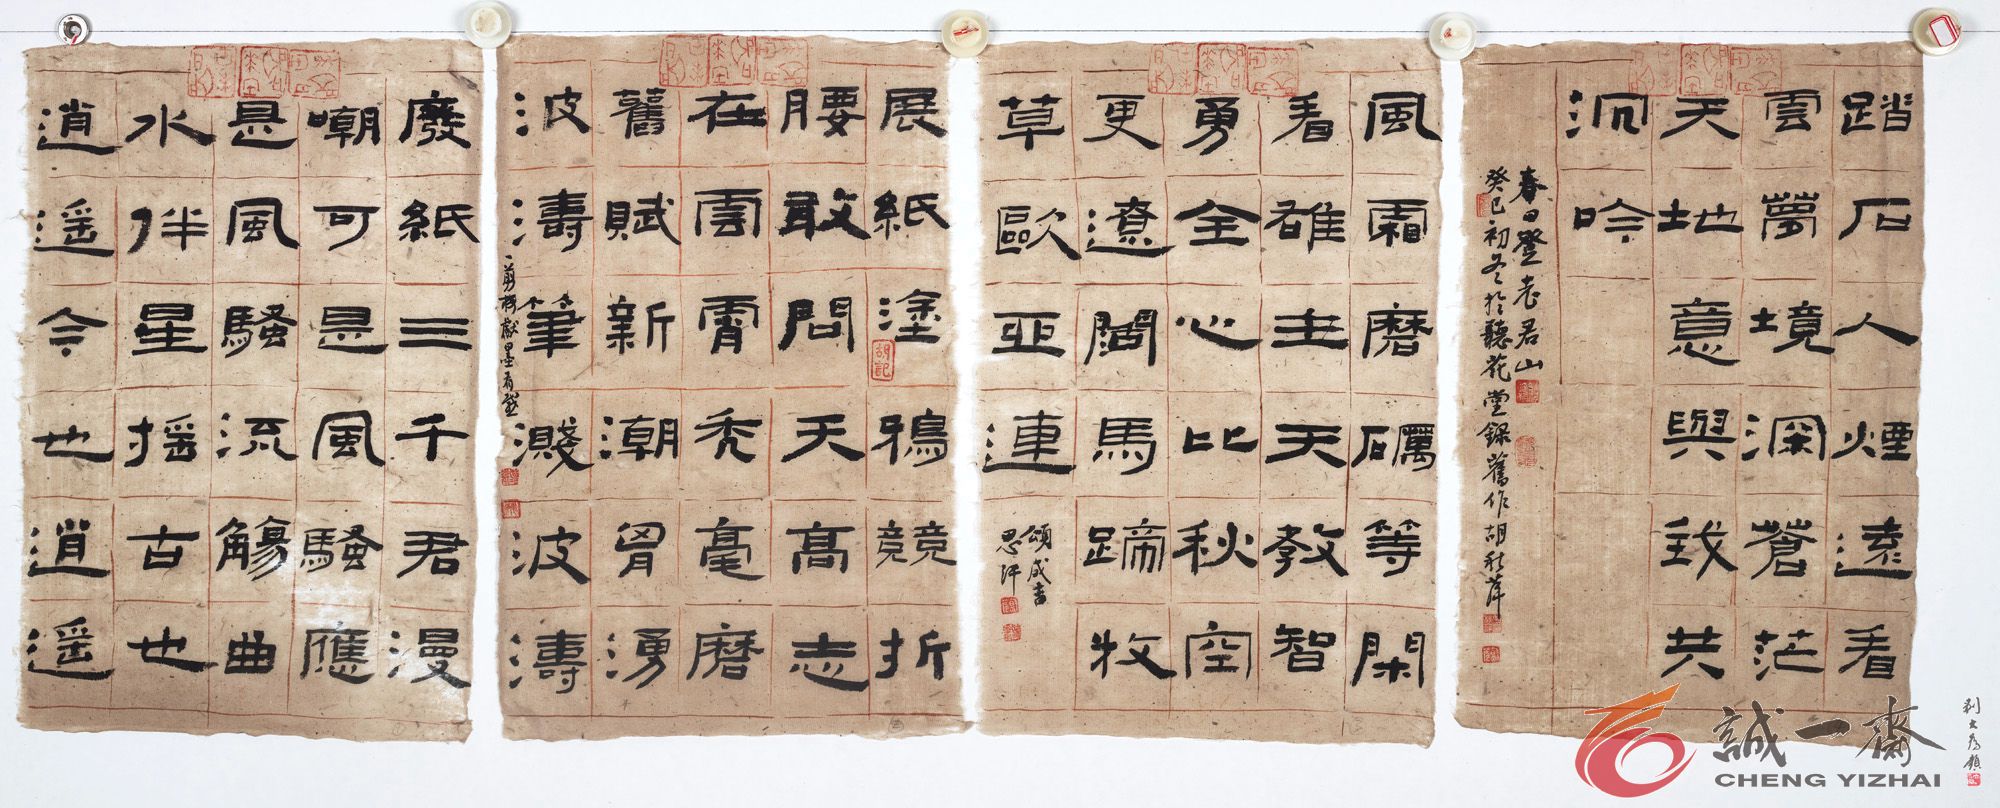 踏石人煙遠看
雲夢境深蒼茫
天地意與我共
沉吟
春日登老君山
癸巳初冬於聽花堂錄舊作胡秋萍
風霜磨礪等閑
看雄主天教智
勇全心比秋空
更遼闊馬蹄牧
草歐亞連
頌成吉
思汗
展紙塗鴉競折
腰敢問天高志
在雲霄禿毫磨
舊賦新潮胷湧
波濤筆濺波濤
一剪梅獻墨有感
廢紙三千君漫
嘲可是風騷應
是風騷流觴曲
水伴星搖古也
逍遥今也逍遥
胡記
誠一齋
CHENG YIZHAI